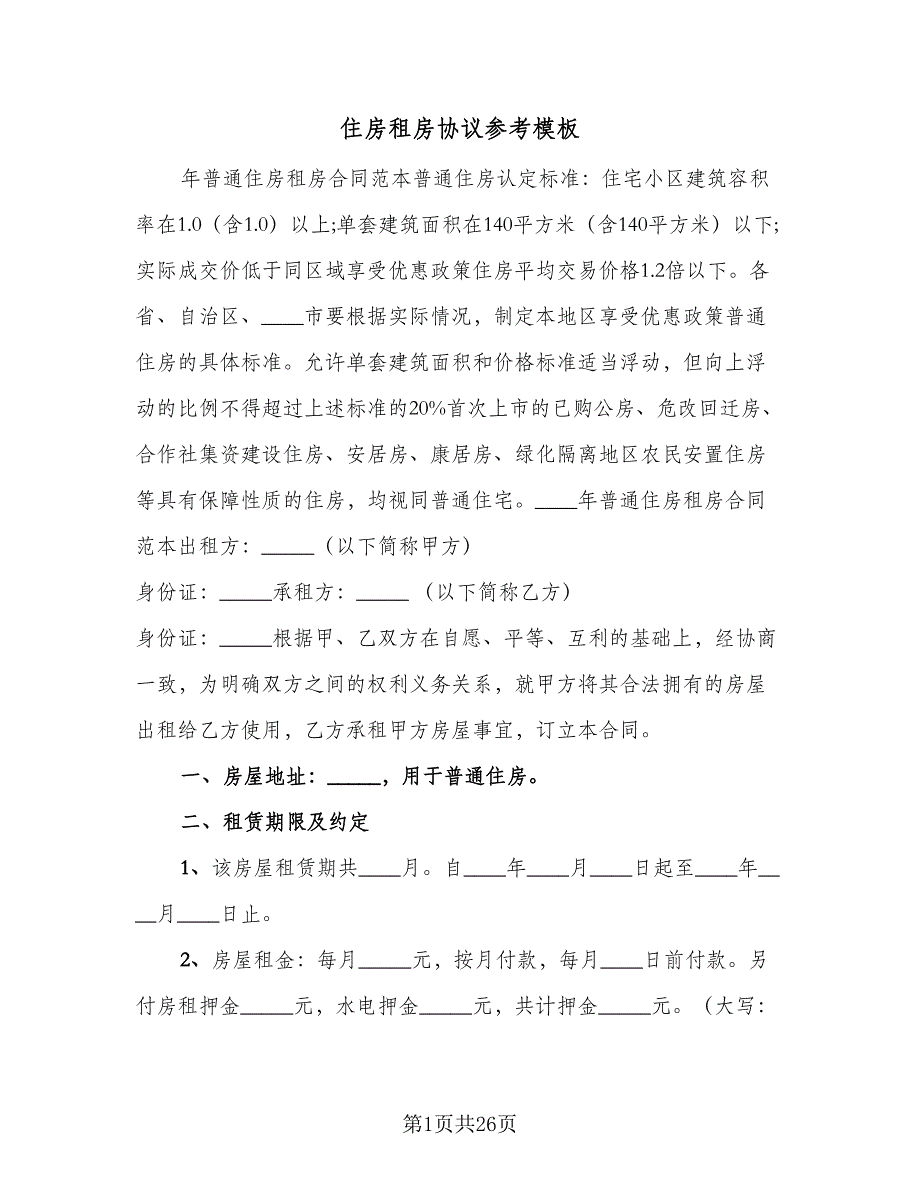 住房租房协议参考模板
年普通住房租房合同范本普通住房认定标准：住宅小区建筑容积
率在1.0（含1.0）以上;单套建筑面积在140平方米（含140平方米）以下;
实际成交价低于同区域享受优惠政策住房平均交易价格1.2倍以下。各
省、自治区、____市要根据实际情况，制定本地区享受优惠政策普通
住房的具体标准。允许单套建筑面积和价格标准适当浮动，但向上浮
动的比例不得超过上述标准的20%首次上市的已购公房、危改回迁房、
合作社集资建设住房、安居房、康居房、绿化隔离地区农民安置住房
等具有保障性质的住房，均视同普通住宅。____年普通住房租房合同
范本出租方：_____（以下简称甲方）
身份证：_____承租方：_____ （以下简称乙方）
身份证：_____根据甲、乙双方在自愿、平等、互利的基础上，经协商
一致，为明确双方之间的权利义务关系，就甲方将其合法拥有的房屋
出租给乙方使用，乙方承租甲方房屋事宜，订立本合同。
一、房屋地址：_____，用于普通住房。
二、租赁期限及约定
1、该房屋租赁期共____月。自____年____月____日起至____年__
__月____日止。
2、房屋租金：每月_____元，按月付款，每月____日前付款。另
付房租押金_____元，水电押金_____元，共计押金_____元。（大写：
第1页共26页